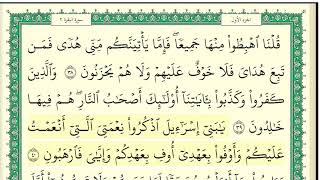 الجزء الأول
سورة البقرة ٢
قُلْنَا ٱهْبِطُوا۟ مِنْهَا جَمِيعًا ۖ فَإِمَّا يَأْتِيَنَّكُم مِّنِّى هُدًى فَمَن
تَبِعَ هُدَاىَ فَلَا خَوْفٌ عَلَيْهِمْ وَلَا هُمْ يَحْزَنُونَ ٣٨ وَٱلَّذِينَ
كَفَرُوا۟ وَكَذَّبُوا۟ بِـَٔايَـٰتِنَآ أُو۟لَـٰٓئِكَ أَصْحَـٰبُ ٱلنَّارِ ۖ هُمْ فِيهَا
خَـٰلِدُونَ ٣٩ يَـٰبَنِىٓ إِسْرَٰٓءِيلَ ٱذْكُرُوا۟ نِعْمَتِىَ ٱلَّتِىٓ أَنْعَمْتُ
عَلَيْكُمْ وَأَوْفُوا۟ بِعَهْدِىٓ أُوفِ بِعَهْدِكُمْ وَإِيَّـٰىَ فَٱرْهَبُونِ ٤٠